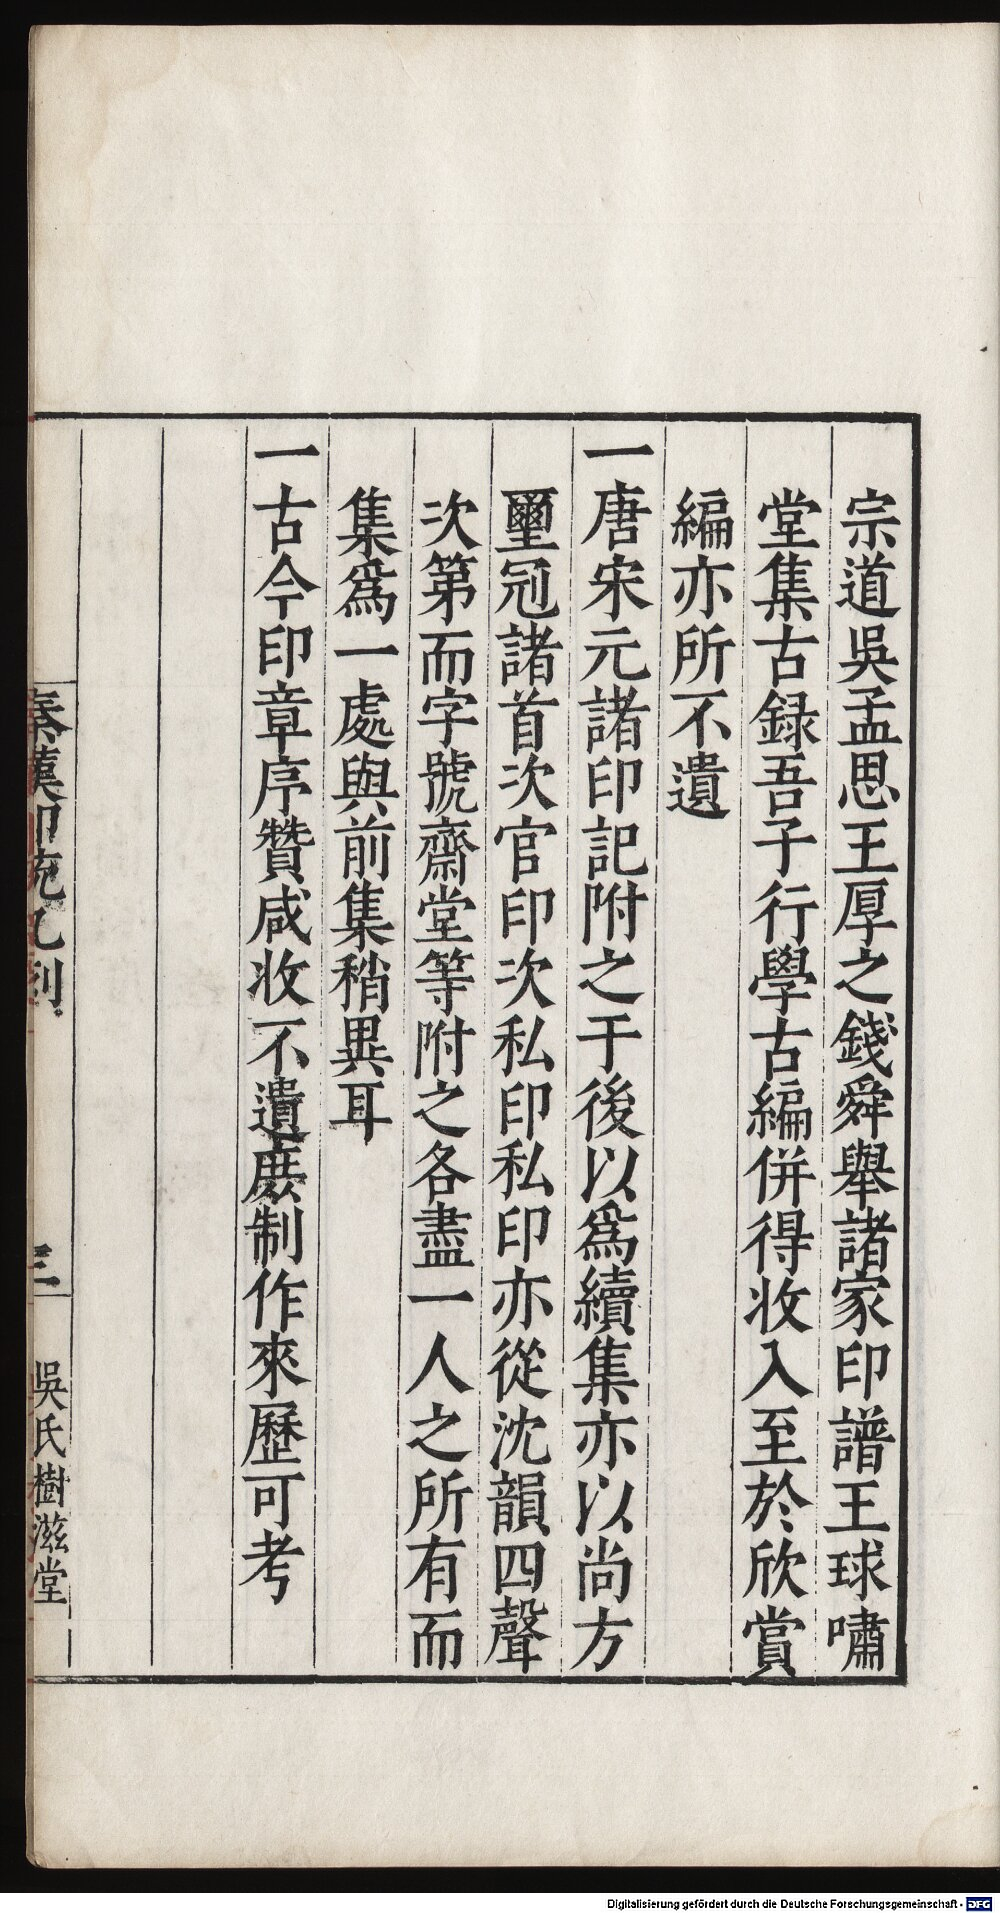 宗道吳孟思王厚之錢舜舉諸家印譜王球嘯
堂集古録吾子行學古編併得收入至於欣賞
編亦所不遺
一唐宋元諸印記附之于後以爲續集亦以尚方
璽冠諸首次官印次私印私印亦從沈韻四聲
次第而字號齋堂等附之各盡一人之所有而
集爲一處與前集稍異耳
一古今印章序贊咸收不遺庶制作來歷可考
秦漢印統凡例
三
吳氏樹滋堂
Digitalisierung gefördert durch die Deutsche Forschungsgemeinschaft - DFG